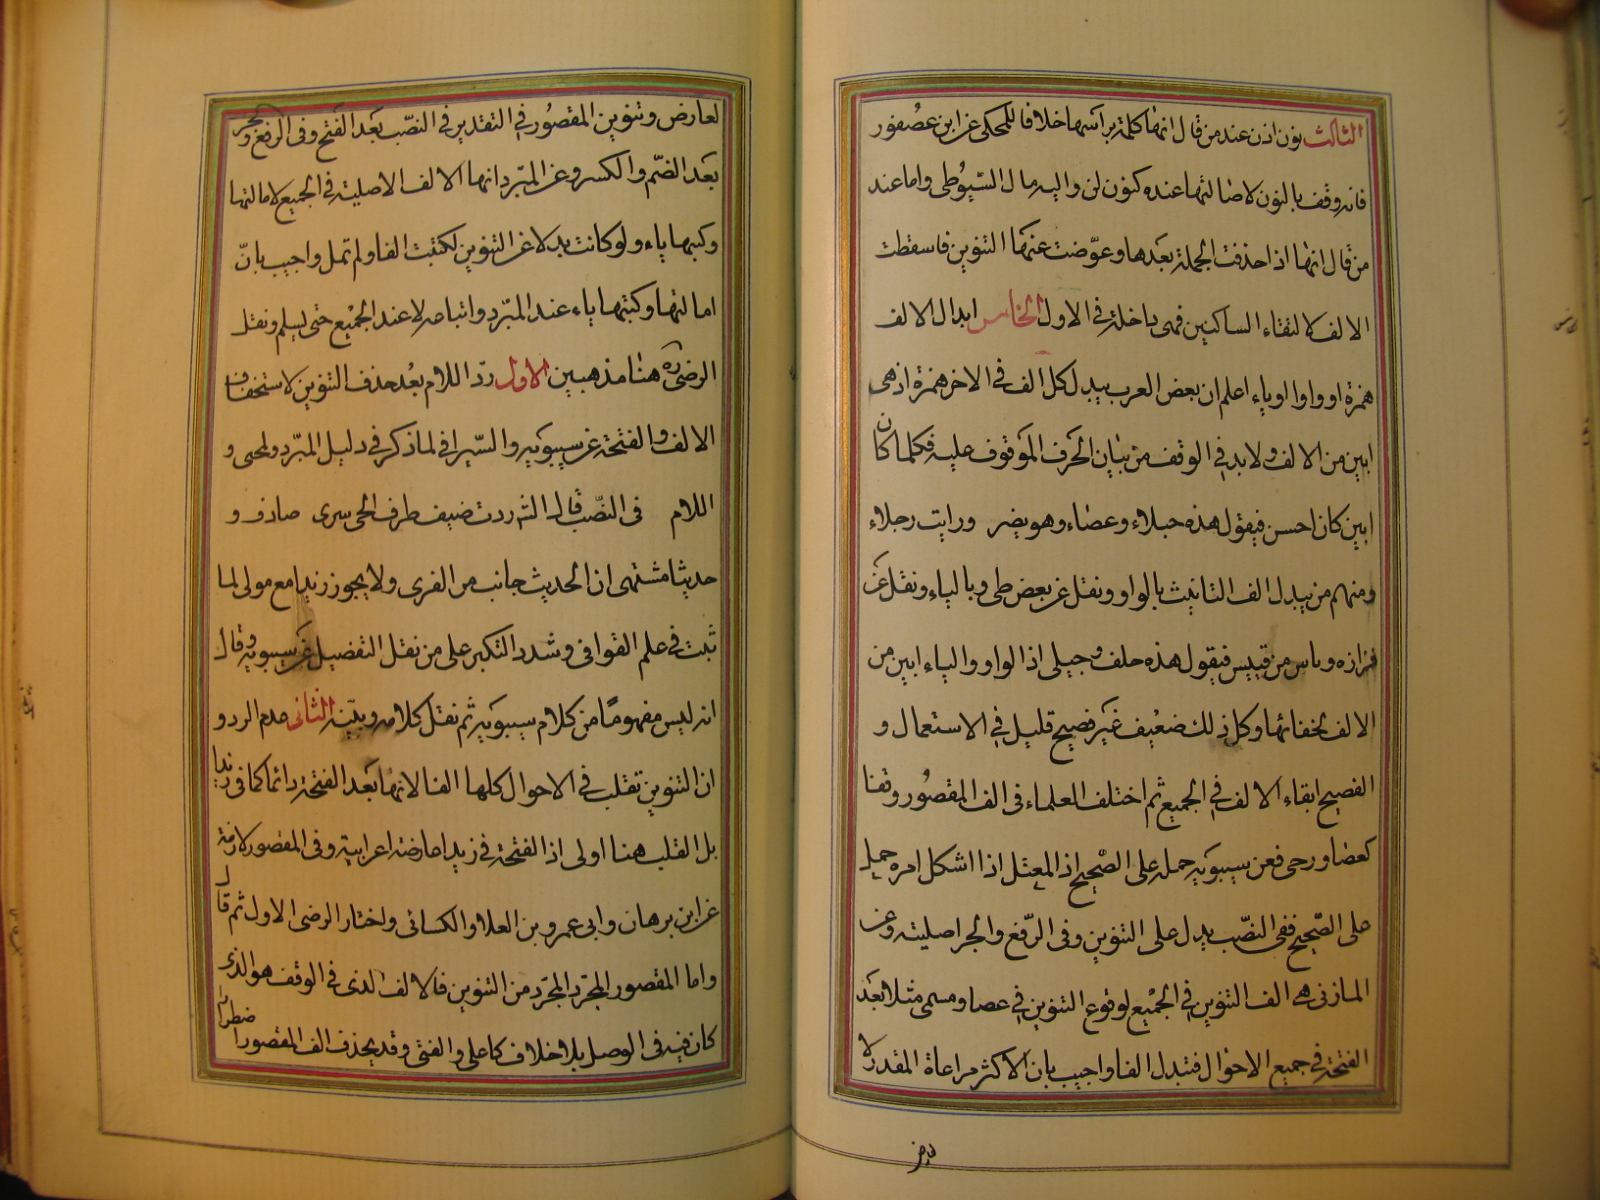 الثالث نون اذن عند من قال انها كلمة برأسها خلافا للمحكى عن ابن عصفور
فانه وقف بالنون لاصالتها عنده كنون لن واليه مال السّيوطى واما عند
من قال انها اذا حذفت الجملة بعدها وعوّضت عنها التنوين فاسقطت
الالف لالتقاء الساكنين فهى داخلة فى الاول الخامس ابدال الالف
همزة او واوا او ياء اعلم ان بعض العرب يبدل كل الف فى الاخر همزة اذ هى
ابين من الالف ولا بد فى الوقف من بيان الحرف الموقوف عليه فكلما كان
ابين كان احسن فيقول هذه حبلاء وعصاء وهو يضر ورايت رجلاء
ومنهم من يبدل الف التانيث بالواو ونقل عن بعض طى وبالياء ونقل عن
فزازه وناس من قيس فيقول هذه حلف وجبلى اذ الواو والياء ابين من
الالف لخفائها وكل ذلك ضعيف غير فصيح قليل فى الاستعمال و
الفصيح ابقاء الالف فى الجميع ثم اختلف العلماء فى الف المقصور وقفا
كعصا ورحى فعن سيبويه حمله على الصّحيح اذ المعتل اذا اشكل امره حمل
على الصّحيح ففى النصّب بدل على التنوين وفى الرّفع والجر اصليته وعن
المازنى هى الف التنوين فى الجميع لوقوع التنوين فى عصا ومسمى مثلا بعد
الفتحة فى جميع الاحوال فتبدل الفا واجيب بان الاكثر مراعاة المقدر لا
لعارض وتنوين المقصور فى التقدير فى النصّب بعد الفتح وفى الرفع والجر
بعد الضّم والكسر وعن المبّرد انها الالف الاصلية فى الجميع لامالتها
وكتبها ياء ولو كانت بدلا عن التنوين لكتبت الفا ولم تمل واجيب بانّ
امالتها وكتبها ياء عند المبّرد واتباعه لا عند الجميع حتى يسلم ونقل
الرضى ره هنا مذهبين الاول ردّ اللام بعد حذف التنوين لاستخفاف
الالف والفتحة عن سيبويه والسّيرافى لما ذكر فى دليل المبّرد ولمجئ و
اللام فى النصّب قال الثه ردت ضيف طرف الحى سرى صادف و
حديثا مشتهى ان الحديث جانب من القرى ولا يجوز زيدا مع مولى لما
ثبت فى علم القوافى وشدد النكير على من نقل التفضيل عن سيبويه وقال
انه ليس مفهومًا من كلام سيبويه ثم نقل كلامه وبيّنه الثانى عدم الرد و
ان التنوين تقلب فى الاحوال كلها الفا لانها بعد الفتحة دائما كما فى زيدا
بل القلب هنا اولى اذ الفتحة فى زيدا عارضة اعرابية وفى المقصور لازمة
عن ابن برهان وابى عمرو بن العلا والكسائى واختار الرضى الاول ثم قال
واما المقصور المجّرد المجّرد من التنوين فالالف الذى فى الوقف هو الذى
كان فيه فى الوصل بلا خلاف كاعلى والفتى وقد يحذف الف المقصور اضطرارا